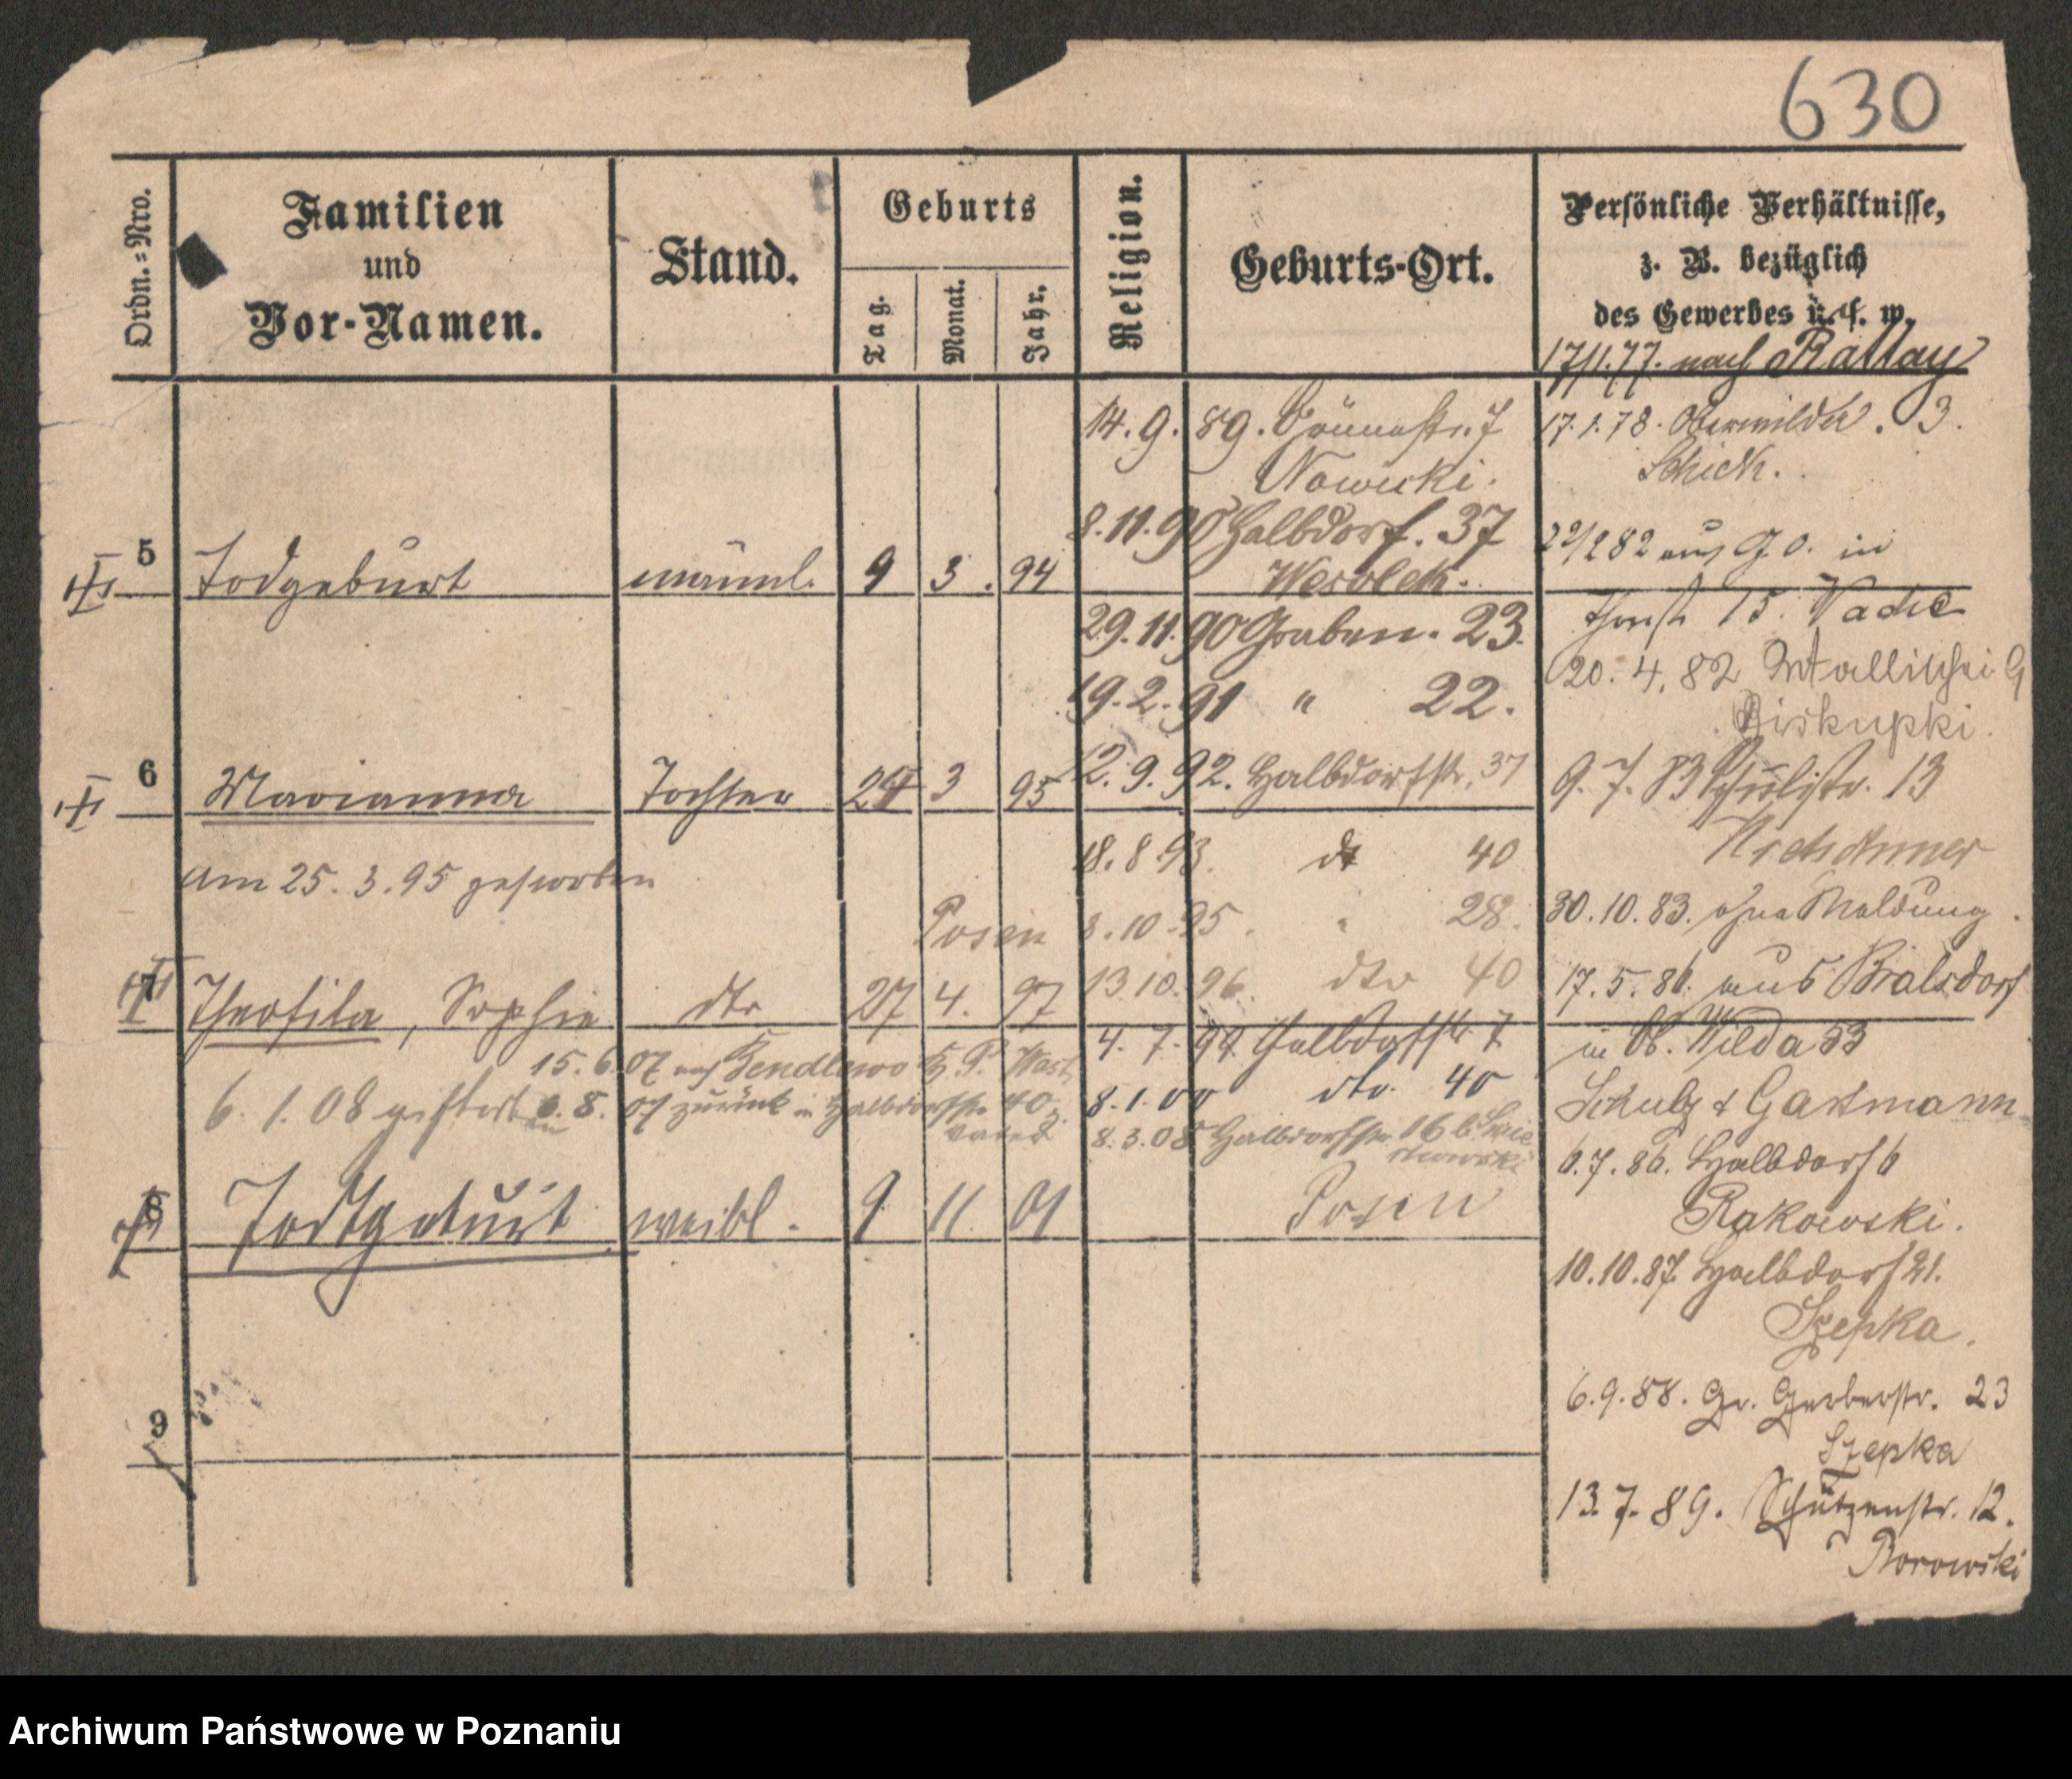 630
Ordn.=Nro.
Familien
und
Vor-Namen.
Stand.
Geburts
Tag.
Monat.
Jahr.
Religion.
Geburts-Ort.
Persönliche Verhältnisse,
z. B. bezüglich
des Gewerbes u. s. w.
5 Todgeburt männl. 9 3. 94
6 Marianna Tochter 24 3 95
am 25. 3. 95 gestorben
Posen
7 Theofila, Sophie dto 27 4. 97
15. 6. 07 nach
6. 1. 08 8. 07 zurück in Halbdorfstr. 40 z.
Vater
8 Todtgeburt weibl. 9 11. 01 Posen
9
14. 9. 89. 7
Nowicki.
8. 11. 90 Halbdorf. 37
Wesolek.
29. 11. 90 Graben. 23.
19. 2. 91 " 22.
12. 9. 92. Halbdorfstr. 37
18. 8. 93. dt 40
8. 10. 95. " 28.
13 10. 96. dto 40
4. 7. 99 Halbdorfstr 7
8. 1. 00 dto. 40
8. 3. 08 Halbdorfstr. 16 b.
17/1. 77. nach Rattay
17. 1. 78. Oberwilda. 3.
Schick.
82 aus in
15.
20. 4. 82
Biskupki.
9. 7. 83 Schulstr. 13
30. 10. 83. ohne Meldung.
17. 5. 86. aus
in Ob. Wilda 53
Schulz & Gassmann
6. 7. 86. Halbdorf 6
Rakowski.
10. 10. 87. Halbdorf 21.
Szepka.
6. 9. 88. Gr. Gerberstr. 23
Szepka
13. 7. 89. Schützenstr. 12.
Borowski
Archiwum Państwowe w Poznaniu